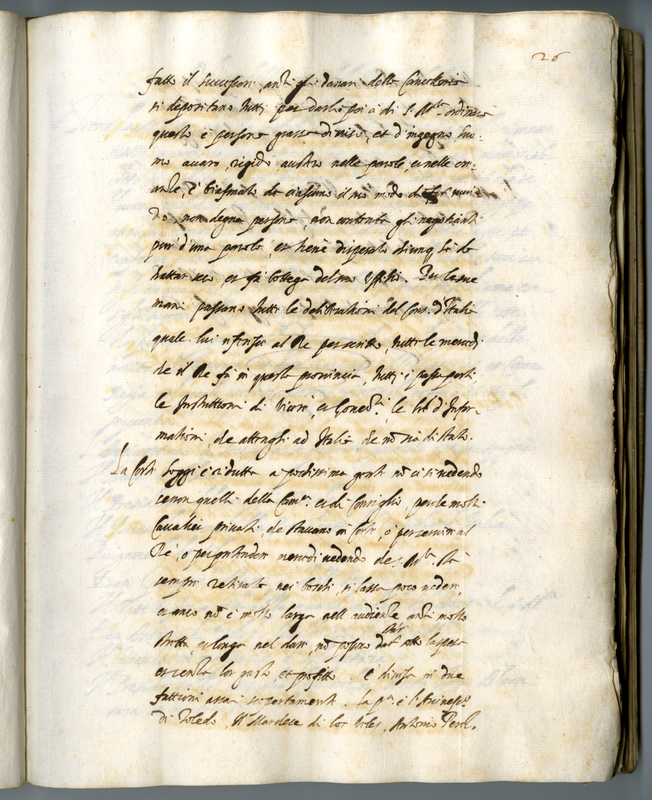 26
fatto il successori, anzi gli danari della Cancelleria
si depositano tutti per darli poi a di S. M.tà ordinario
questo è persona grassa di viso, et d'ingegno, huo-
mo avaro, rigido, austero nelle parole, et nelle
è biasmato da ciascuno il suo modo di
do, non degna persona, non contenta gli negotianti
pur d'una parola, et tiene disperato chiunq. ha da
trattar seco, et fa bottega del suo offitio. Per le sue
mani passano tutte le deliberationi del Cons. d'Italia
quale lui riferisce al Re per scritto, tutte le mercedi
che il Re fa in questa provincia, tutti i passaporti
le Instruttioni di Vicerè, et Governi, le lre d'Infor-
mationi che attenghi ad Italia che nō sia di stato.
La Corte hoggi è ridutta a pochissima gente nō ci si vedendo
senon quelli della Cam.a et di Consiglio, perche molti
Cavalieri privati, che stavano in Corte, ò per servir al
Re, ò per pretender mercedi vedendo che S. M.tà stà
sempre retirata nei boschi, si lassa poco vedere,
et anco nō è molto larga nell'audienze, anzi molto
stretta, et longa nel dare, nō possono la spesa
et senza lor gusto et profitto. È divisa in due
fattioni assai scopertamente. La p.a è l'Arcivesc.o
di Toledo, Il Marchese di los Veles, Antonio Perez,